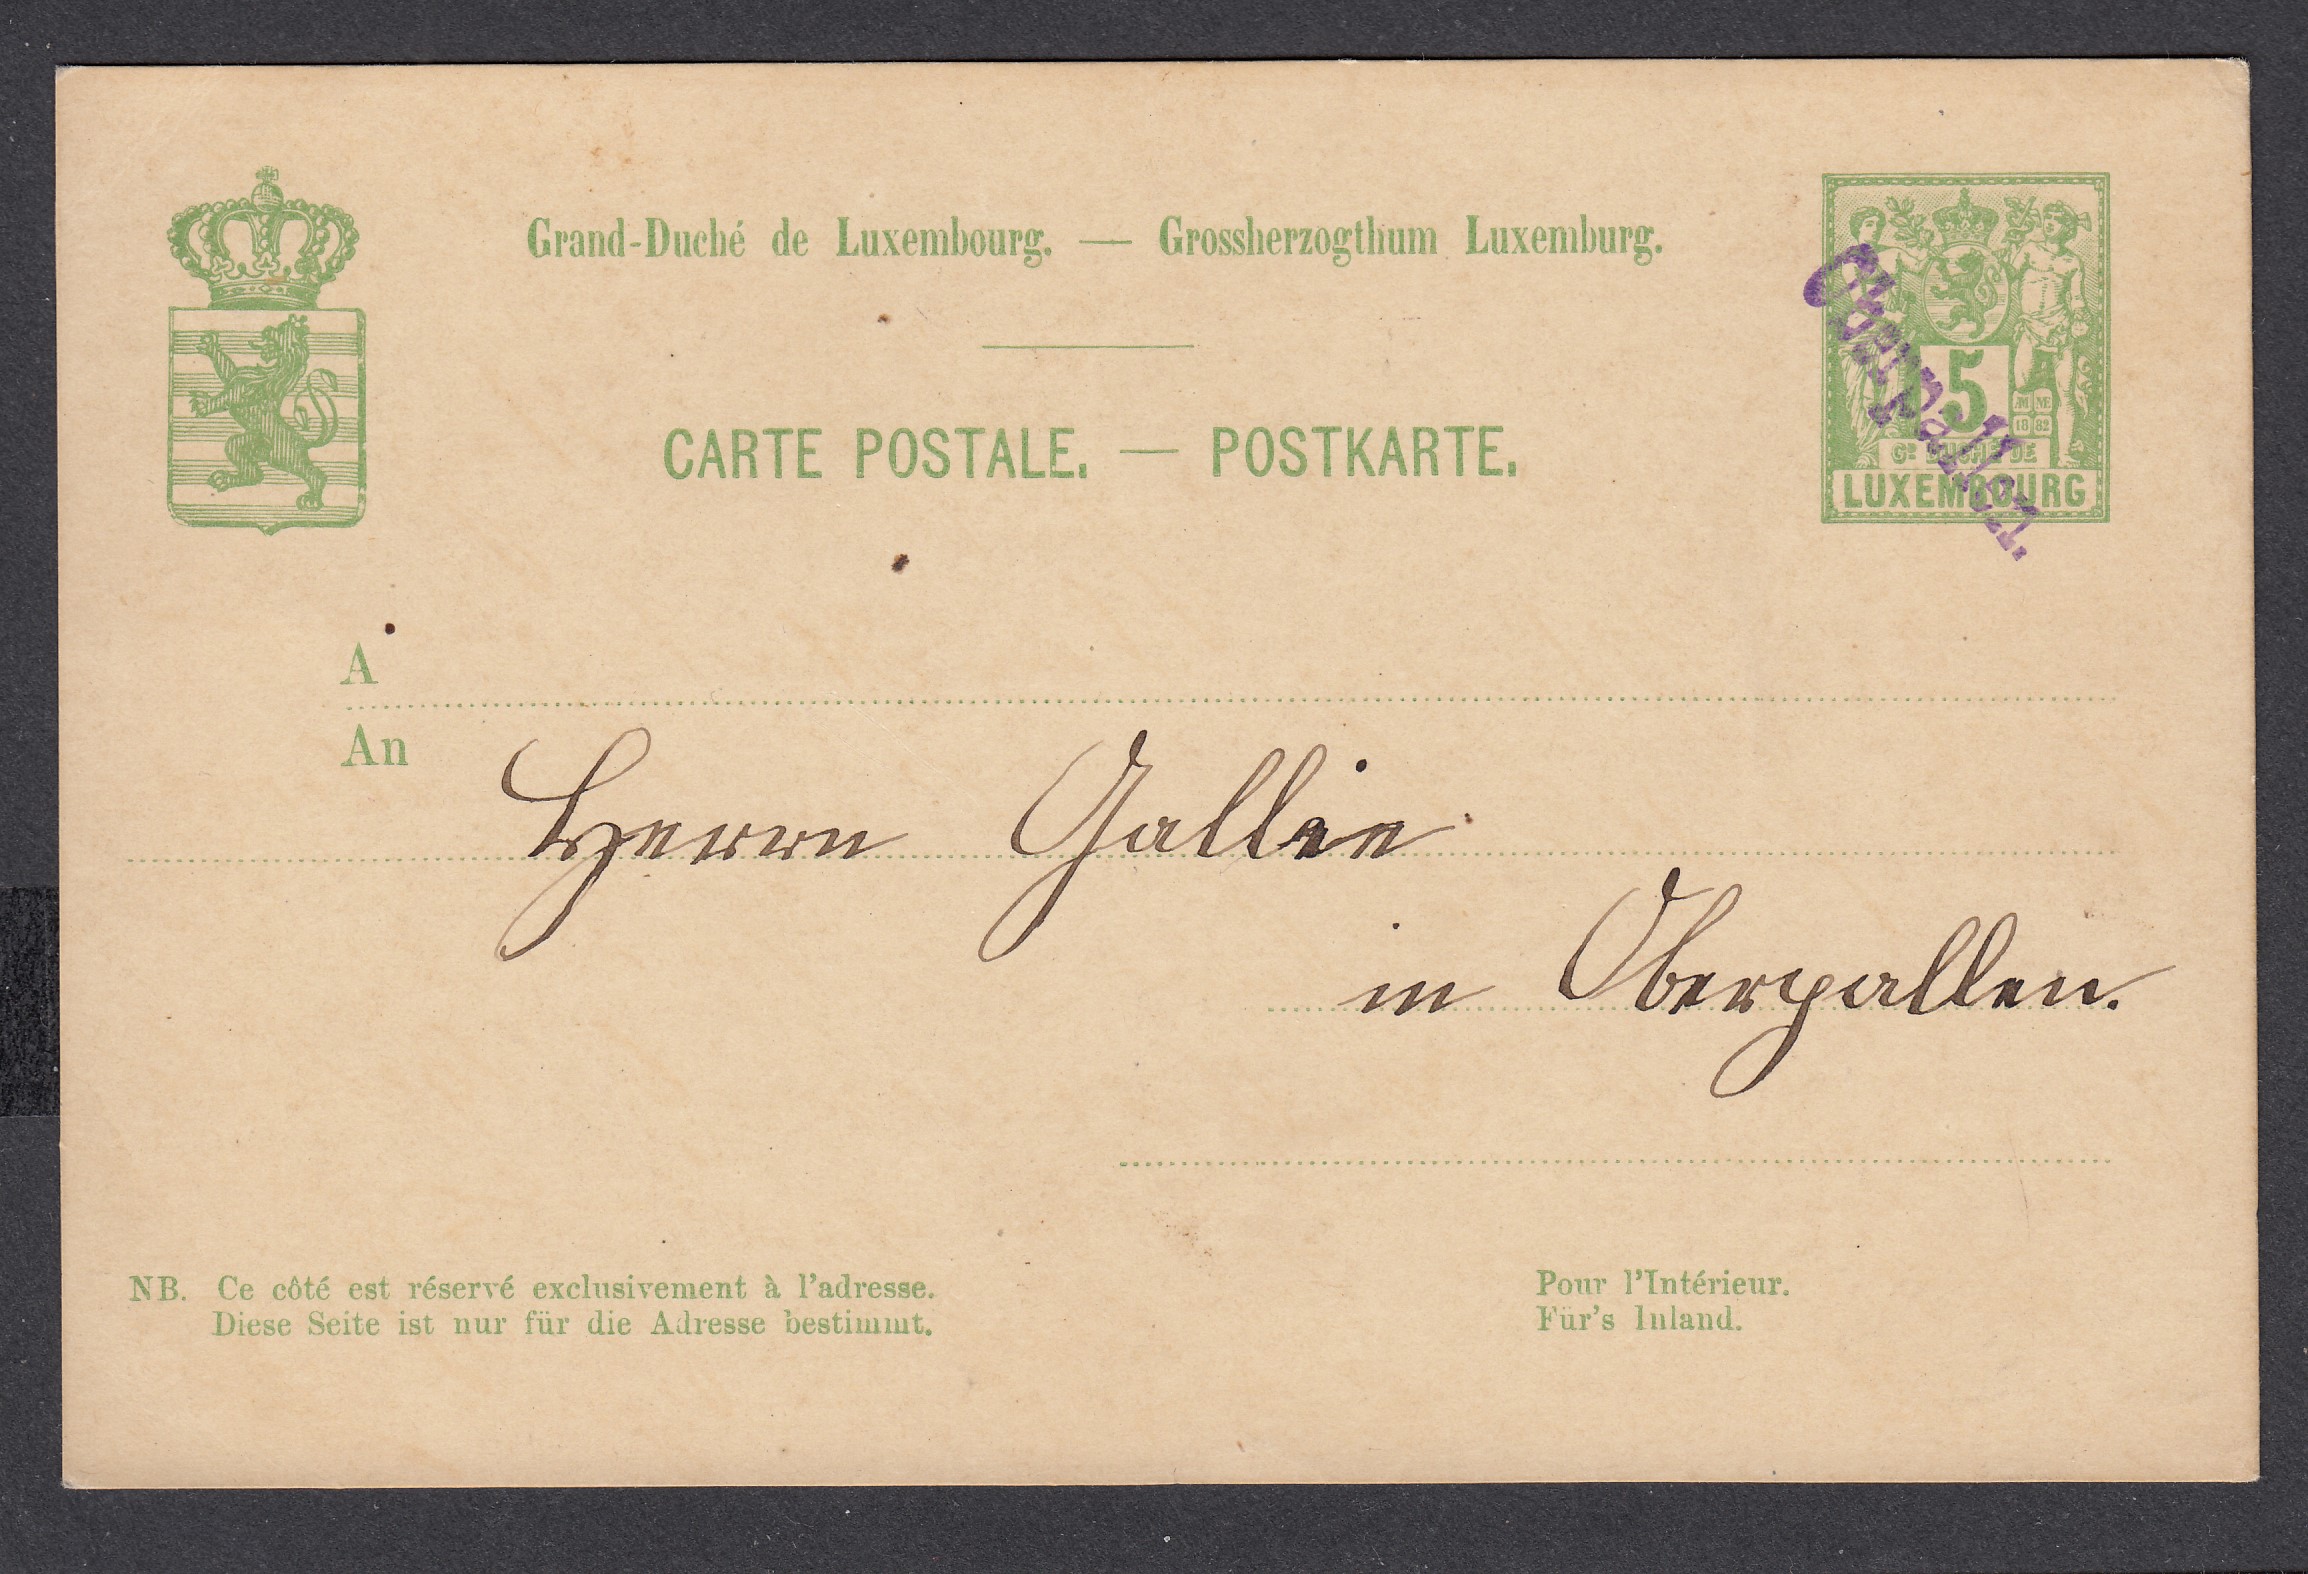 Grand-Duché de Luxembourg. — Grossherzogthum Luxemburg.
CARTE POSTALE. — POSTKARTE.
5
AN NE
18 82
Gᴅ DUCHÉ DE
LUXEMBOURG
Oberpallen.
A
An
Herrn Gallie
in Oberpallen.
NB. Ce côté est réservé exclusivement à l'adresse.
Diese Seite ist nur für die Adresse bestimmt.
Pour l'Intérieur.
Für's Inland.